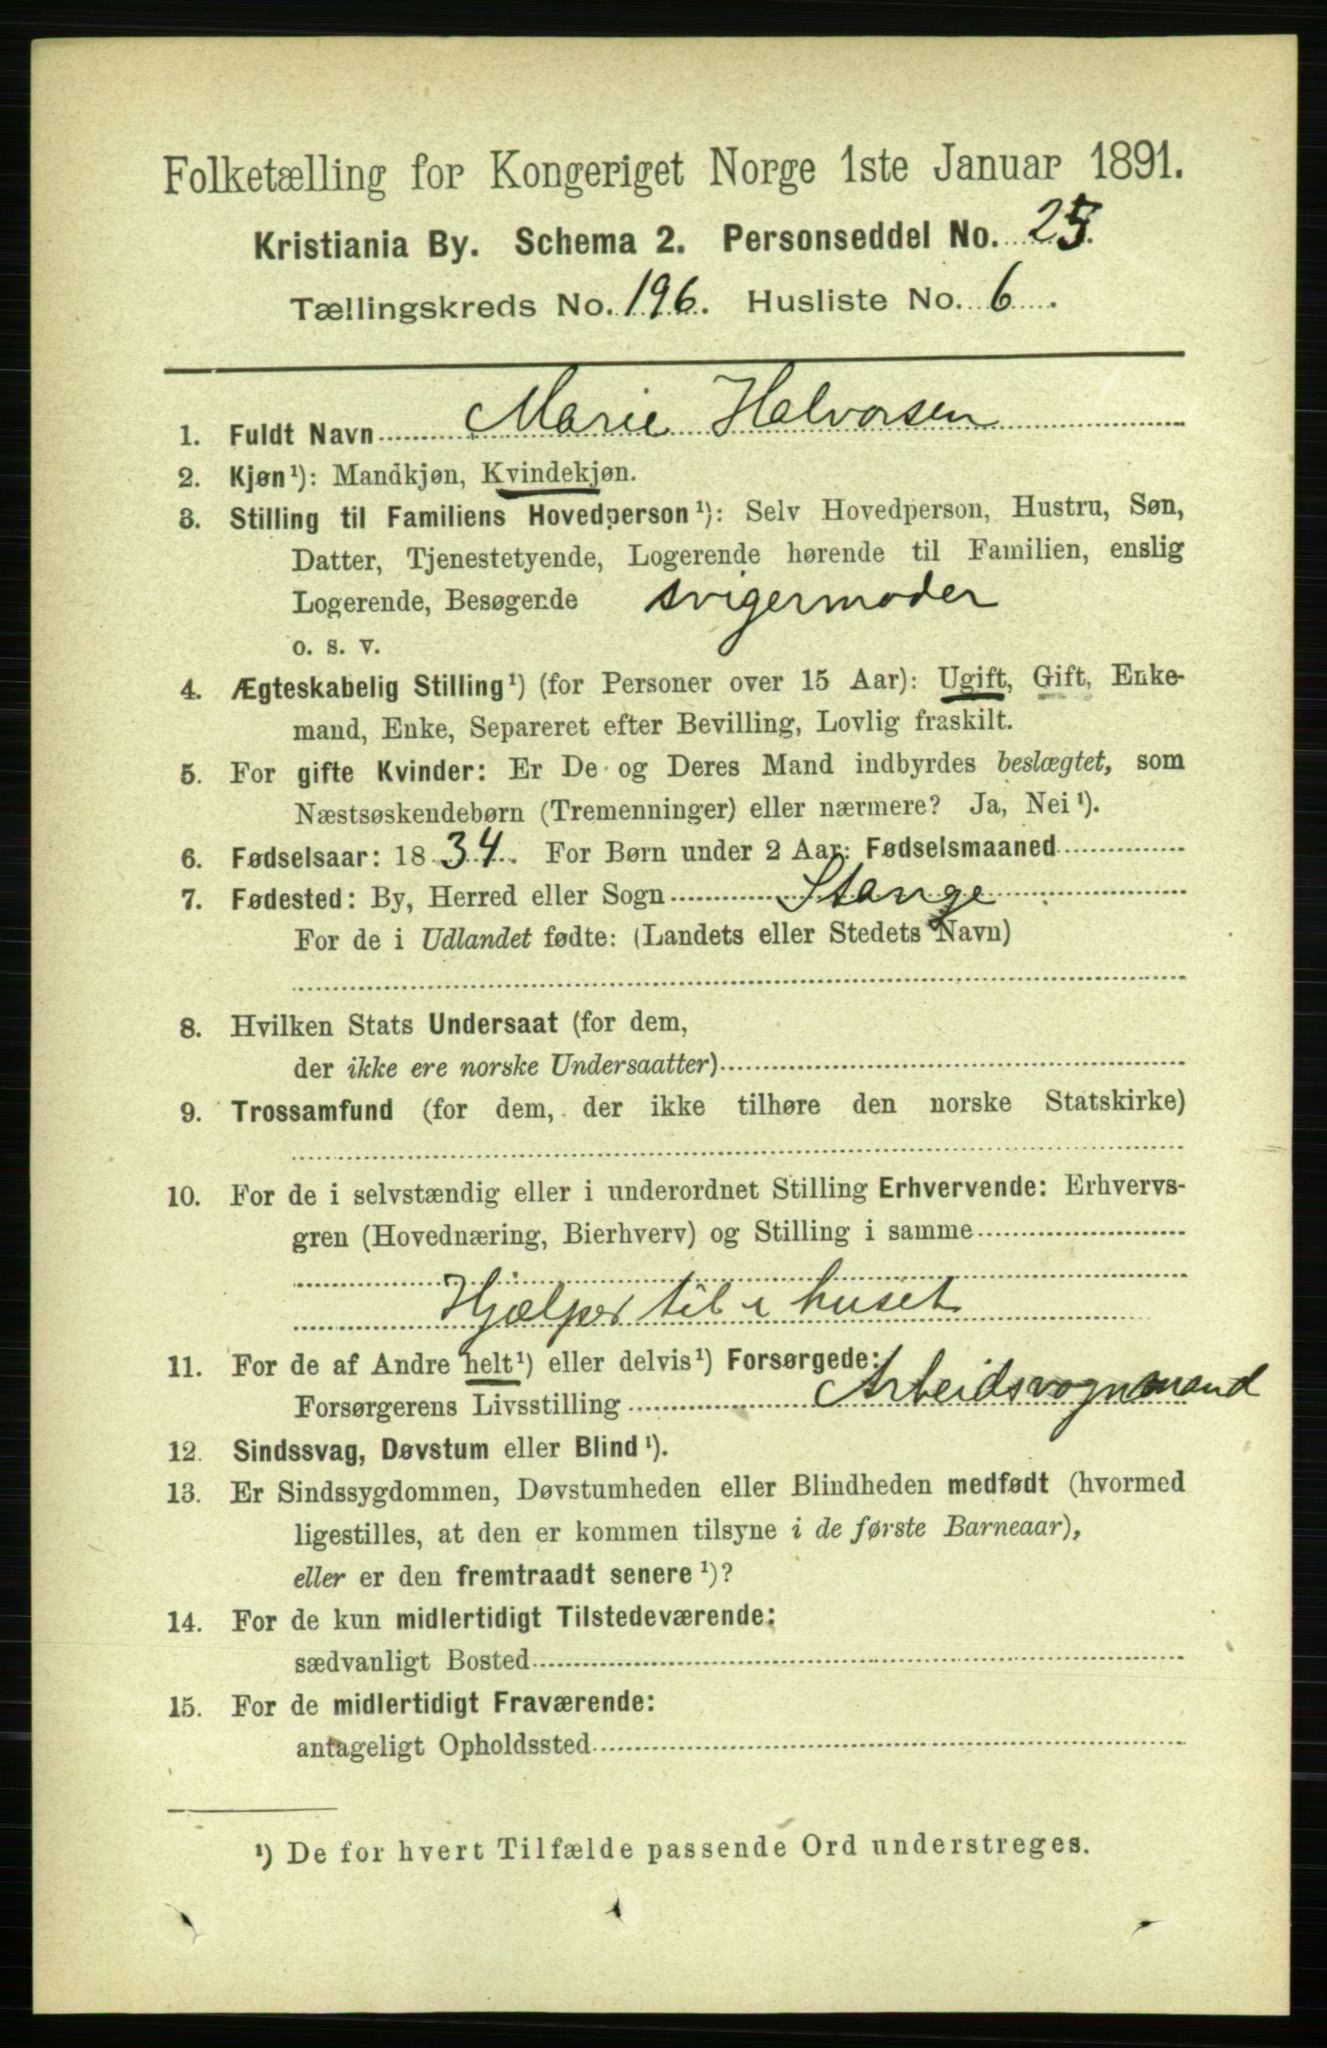 Folketælling for Kongeriget Norge 1ste Januar 1891.
Kristiania By. Schema 2. Personseddel No. 25.
Tællingskreds No. 196. Husliste No. 6.
1. Fuldt Navn Marie Halvorsen
2. Kjøn¹): Mandkjøn, Kvindekjøn.
3. Stilling til Familiens Hovedperson¹): Selv Hovedperson, Hustru, Søn,
Datter, Tjenestetyende, Logerende hørende til Familien, enslig
Logerende, Besøgende svigermoder
o. s. v.
4. Ægteskabelig Stilling¹) (for Personer over 15 Aar): Ugift, Gift, Enke-
mand, Enke, Separeret efter Bevilling, Lovlig fraskilt.
5. For gifte Kvinder: Er De og Deres Mand indbyrdes beslægtet, som
Næstsøskendebørn (Tremenninger) eller nærmere? Ja, Nei¹).
6. Fødselsaar: 1834. For Børn under 2 Aar: Fødselsmaaned
7. Fødested: By, Herred eller Sogn Stange
For de i Udlandet fødte: (Landets eller Stedets Navn)
8. Hvilken Stats Undersaat (for dem,
der ikke ere norske Undersaatter)
9. Trossamfund (for dem, der ikke tilhøre den norske Statskirke)
10. For de i selvstændig eller i underordnet Stilling Erhvervende: Erhvervs-
gren (Hovednæring, Bierhverv) og Stilling i samme
Hjælper til i huset
11. For de af Andre helt¹) eller delvis¹) Forsørgede:
Forsørgerens Livsstilling Arbeidsvognmand
12. Sindssvag, Døvstum eller Blind¹).
13. Er Sindssygdommen, Døvstumheden eller Blindheden medfødt (hvormed
ligestilles, at den er kommen tilsyne i de første Barneaar),
eller er den fremtraadt senere¹)?
14. For de kun midlertidigt Tilstedeværende:
sædvanligt Bosted
15. For de midlertidigt Fraværende:
antageligt Opholdssted
¹) De for hvert Tilfælde passende Ord understreges.